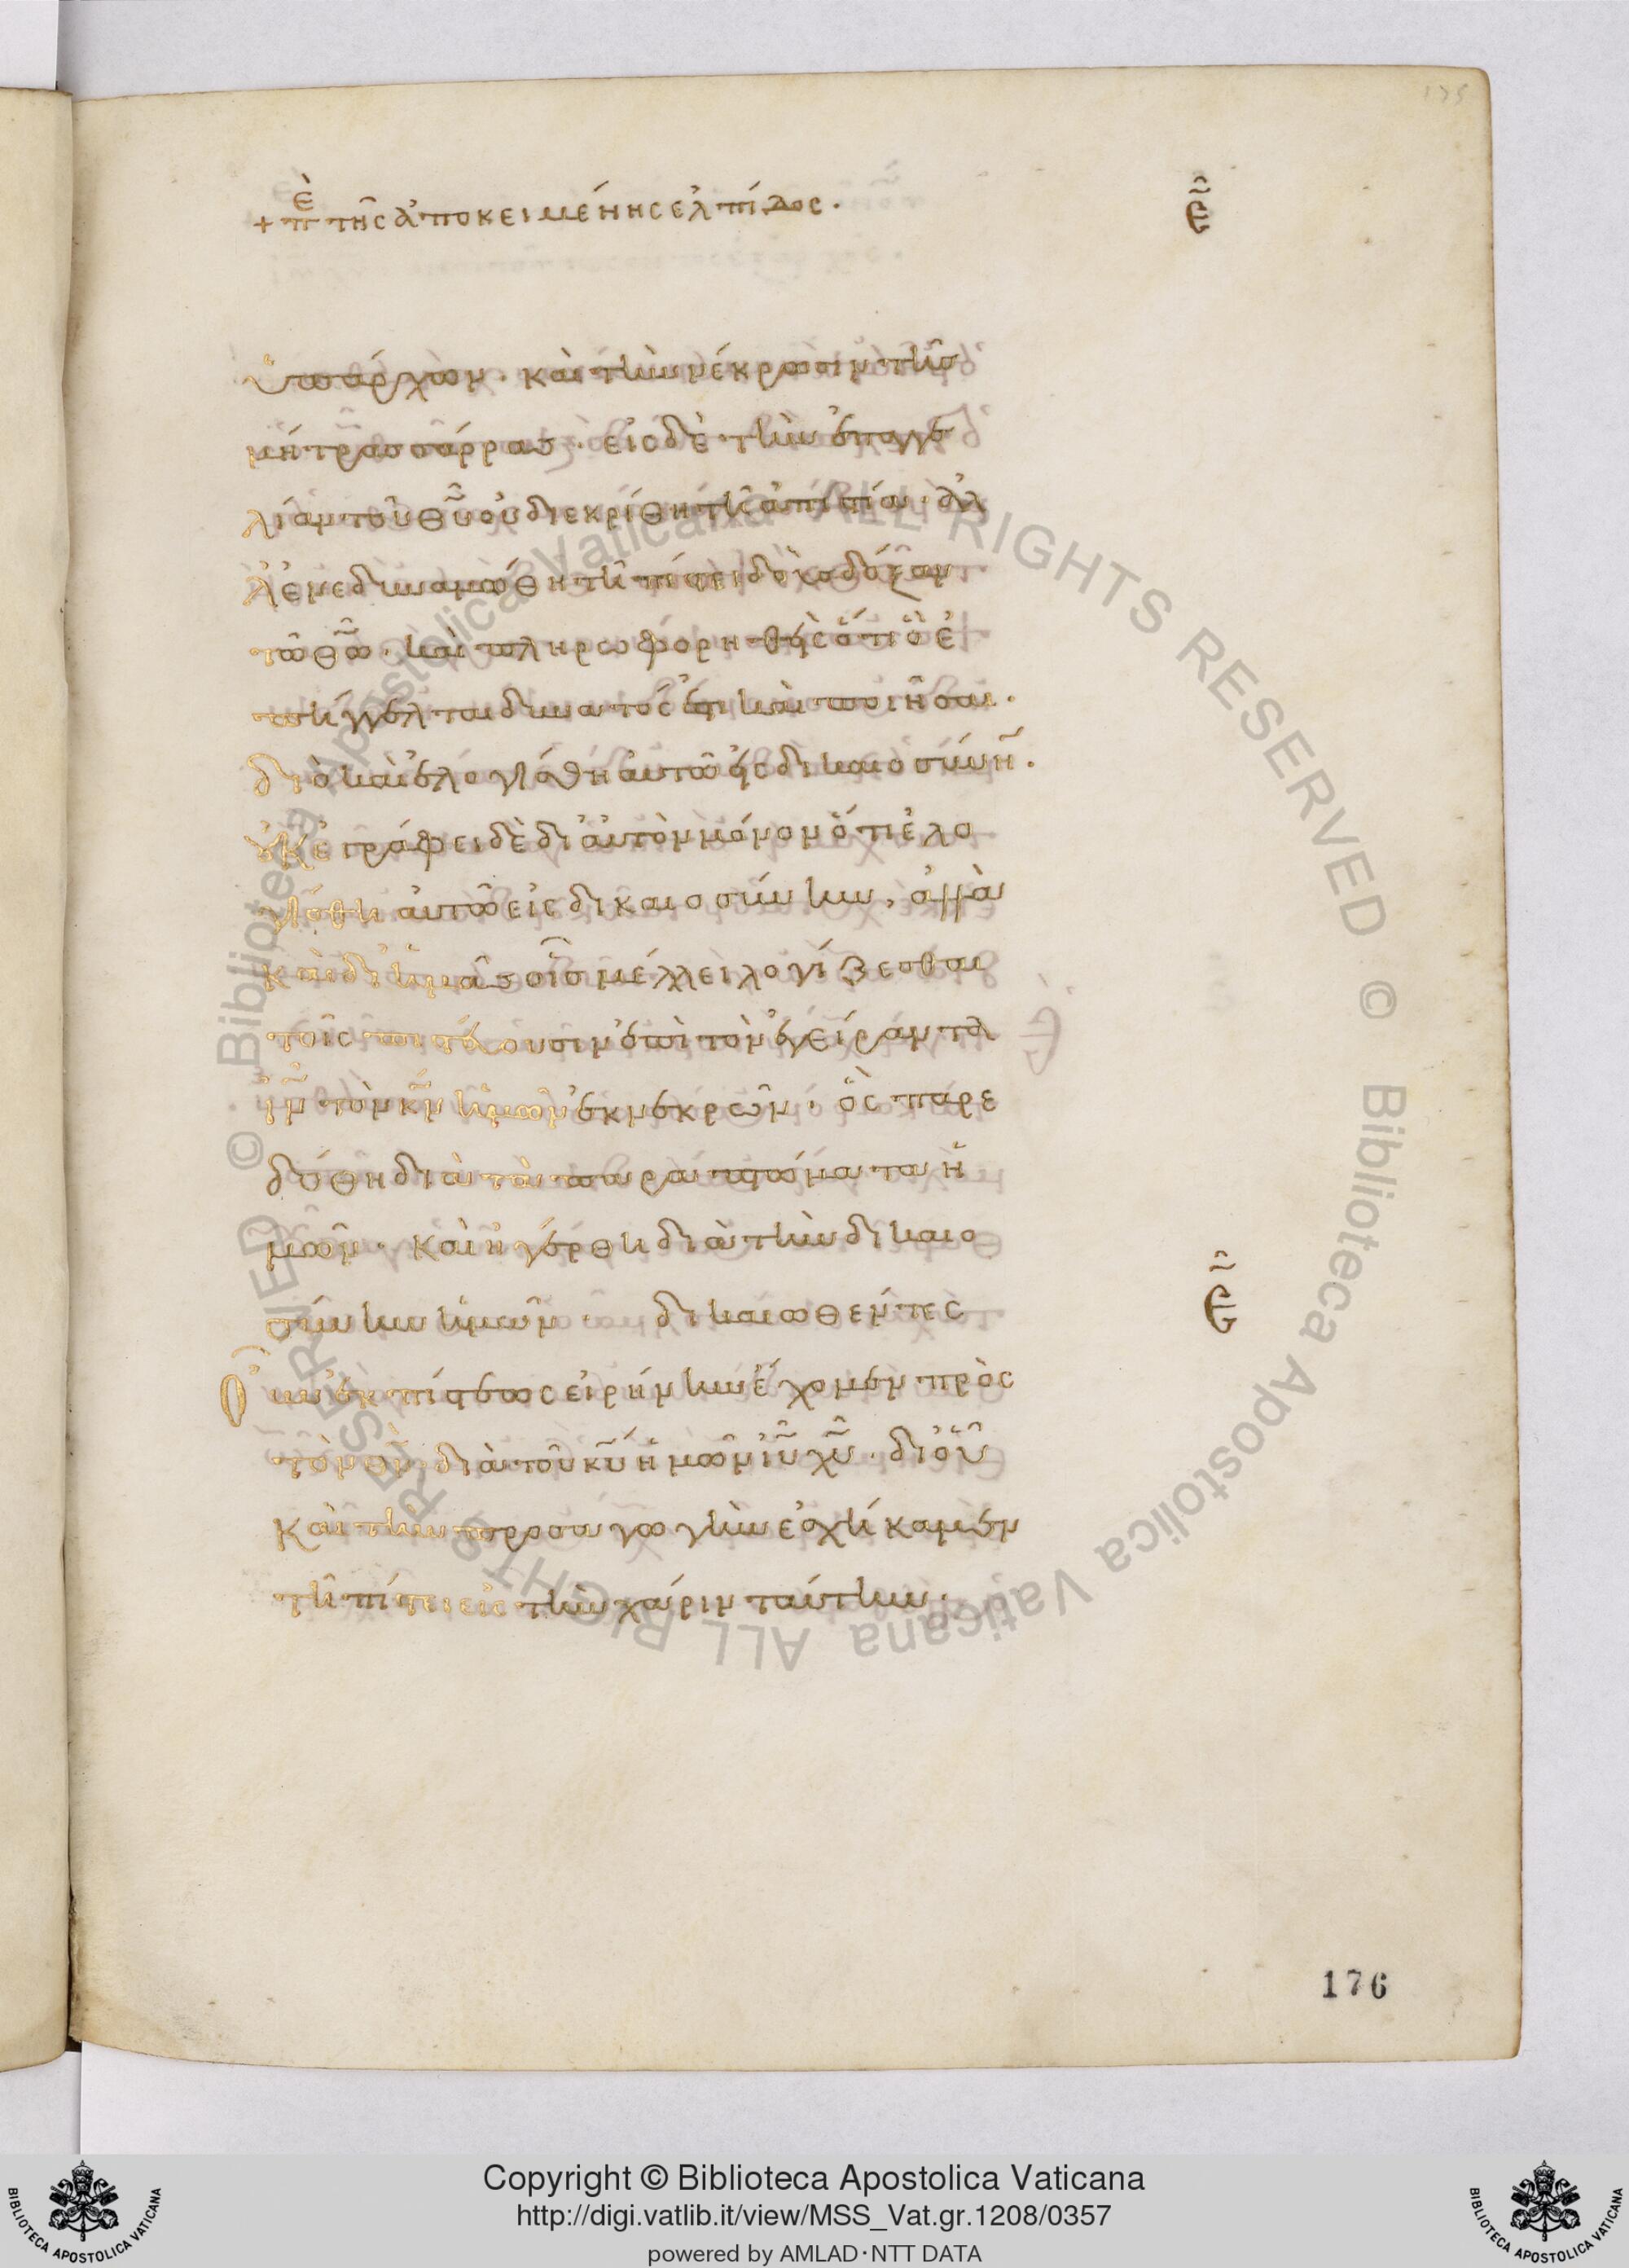 + πὲ τῆς ἀποκειμένης ἐλπίδος.
ε̃
ὑπάρχων. καὶ τὴν νέκρωσιν τῆς
μήτρας σάρρας. εἰς δὲ τὴν ἐπαγγε
λίαν τοῦ θ̅υ̅ οὐ διεκρίθη τῆ ἀπιστία. ἀλ
λ᾽ ἐνεδυναμώθη τῆ πίστει δοὺς δόξαν
τῶ θ̅ω̅. καὶ πληροφορηθεὶς ὅτι ὃ ἐ
πήγγελται δυνατός ἐστι καὶ ποιῆσαι.
διὸ καὶ ἐλογίσθη αὐτῶ εἰς δικαιοσύνη̅.
οὐκ ἐγράφει δὲ δι᾽ αὐτὸν μόνον ὅτι ἐλο
γίσθη αὐτῶ εἰς δικαιοσύνην, ἀλλὰ
καὶ δι᾽ ἡμᾶς οἷς μέλλει λογίζεσθαι
τοῖς πιστεύουσιν ἐπὶ τὸν ἐγείραντα
ἰ̅ν̅ τὸν κ̅ν̅ ἡμῶν ἐκ νεκρῶν. ὃς παρε
δόθη διὰ τὰ παραπτώματα ἡ
μῶν. καὶ ἠγέρθη διὰ τὴν δικαιο
σύνην ἡμῶν. δικαιωθέντες
ε̃
οὖν ἐκ πίστεως εἰρήνην ἔχομεν πρὸς
τὸν θ̅ν̅ διὰ τοῦ κ̅υ̅ ἡμῶν ἰ̅υ̅ χ̅υ̅. δι᾽ οὗ
καὶ τὴν προσαγωγὴν ἐσχήκαμεν
τῆ πίστει εἰς τὴν χάριν ταύτην.
176
© Biblioteca Apostolica Vaticana ALL RIGHTS RESERVED © Biblioteca Apostolica Vaticana ALL RIGHTS RESERVED
BIBLIOTECA APOSTOLICA VATICANA
Copyright © Biblioteca Apostolica Vaticana
http://digi.vatlib.it/view/MSS_Vat.gr.1208/0357
powered by AMLAD·NTT DATA
BIBLIOTECA APOSTOLICA VATICANA